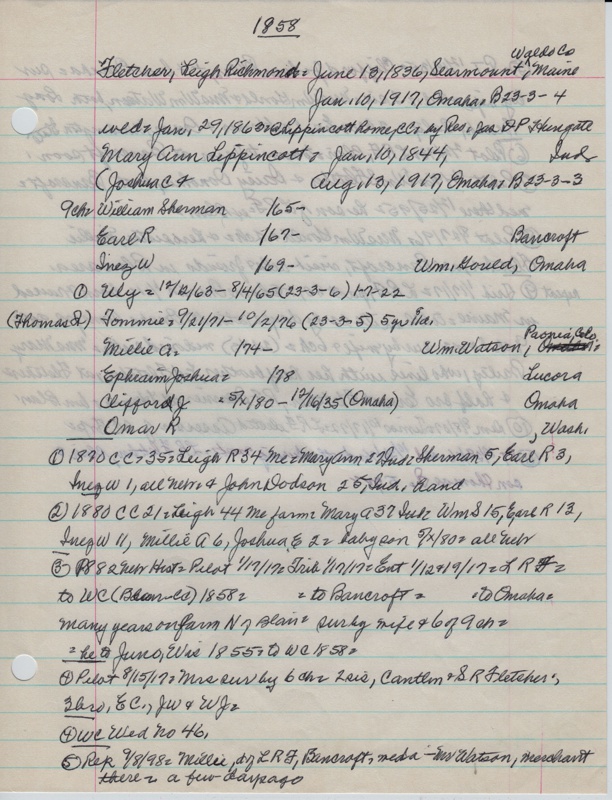 1858
Waldo Co
Fletcher, Leigh Richmond = June 13, 1836, Searmount, Maine
Jan, 10, 1917, Omaha = B 23-3-4
wed = Jan, 29, 1863 = @ Lippincott home, CC = by Rev = Jas
Mary Ann Lippincott = Jan, 10, 1844, Ind =
(Joshua C & Aug, 13, 1917, Omaha = B 23-3-3
9ch = William Sherman /65-
Earl R /67- Bancroft
Inez W /69- Wm, Gould, Omaha
① Uly = 12/12/63 - 8/4/65 (23-3-6) 1-7-22
(Thomas Tommie = 9/21/71 - 10/2/76 (23-3-5) 5yr
Peoria, Colo,
Millie A = /74- Wm. Watson,
Ephraim Joshua = /78 Lucora
Clifford J = 5/x/80 - 12/16/35 (Omaha) Omaha
Omar R , Wash,
① 1870 CC = 35 = Leigh R 34 Me = Mary Ann 27 Ind = Sherman 5, Earl R 3,
Inez W 1, all Nebr = & John Dodson 25, Ind, Hand
② 1880 CC 21 = Leigh 44 Me farm = Mary A 37 Ind = Wm S 15, Earl R 13,
Inez W 11, Millie A 6, Joshua E 2 = baby son 5/x/80 = all Nebr
③ 1882 Nebr Hist = Pilot 1/17/17 = Trib 1/17/17 = Ent 1/12 & 19/17 = L R F =
to WC 1858 = = to Bancroft = = to Omaha =
many years on farm N of Blair = sur by wife & 6 of 9 ch =
= he to Juno, Wis 1855 = to WC 1858 =
④ Pilot 8/15/17 = Mrs sur by 6 ch = 2 sis, Cantlin & S. R Fletcher,
3 bro, E C, J W & W J =
④ WC Wed No 46,
⑤ Rep 9/8/98 = Millie, d/o L R F, Bancroft, wed a Mr Watson, merchant
there = a few days ago